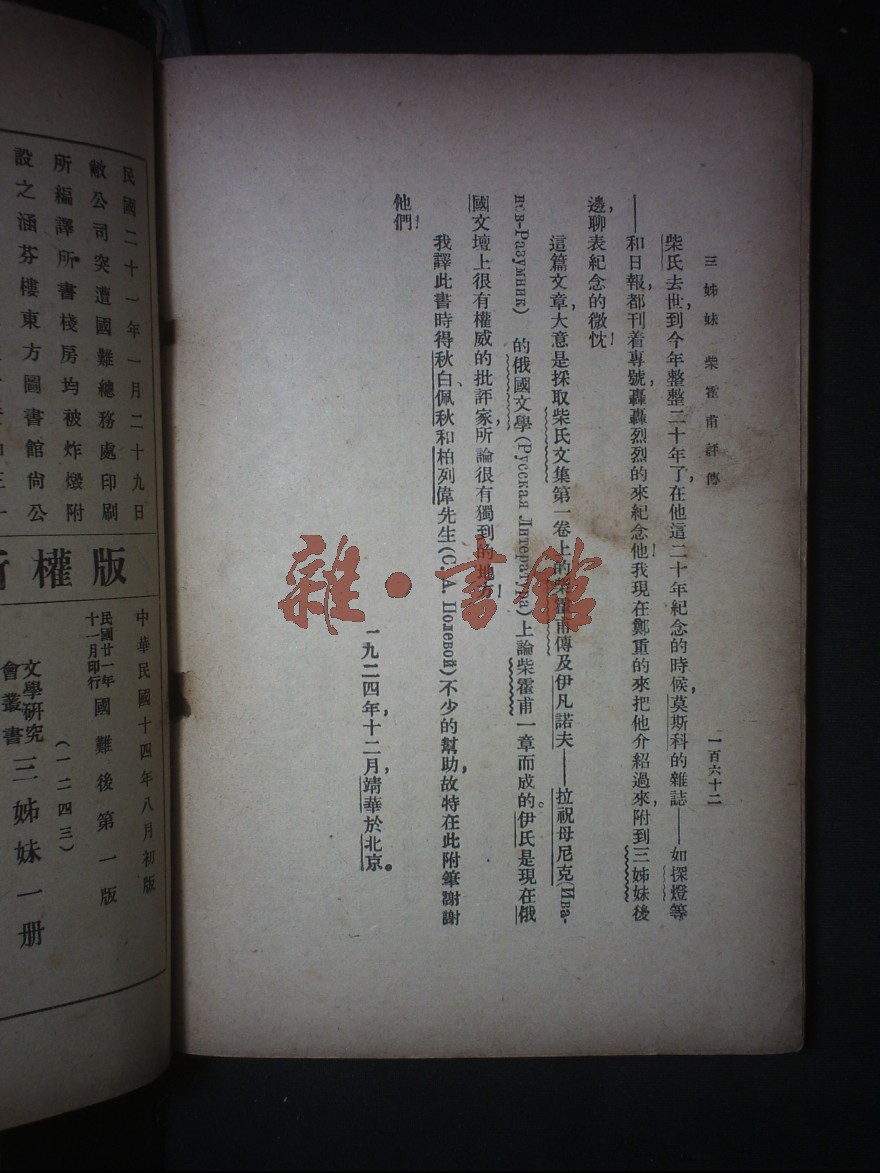 三姊妹 柴霍甫評傳 一百六十二
柴氏去世,到今年整整二十年了,在他這二十年紀念的時候,莫斯科的雜誌——如探燈等
——和日報,都刊着專號,轟轟烈烈的來紀念他!我現在鄭重的來把他介紹過來,附到三姊妹後
邊,聊表紀念的微忱!
這篇文章,大意是採取柴氏文集第一卷上的柴霍甫傳及伊凡諾夫——拉祝母尼克(Ива-
нов-Разумник) 的俄國文學(Русская Литература)上論柴霍甫一章而成的。伊氏是現在俄
國文壇上很有權威的批評家,所論很有獨到的地方!
我譯此書時得秋白、佩秋和柏列偉先生(С. А. Полевой)不少的幫助,故特在此附筆謝謝
他們!
一九二四年,十二月,靖華於北京。
雜·書館
民國二十一年一月二十九日
敝公司突遭國難總務處印刷
所編譯所書棧房均被炸燬附
設之涵芬樓東方圖書館尚公
版權所
中華民國十四年八月初版
民國廿一年十一月印行 國難後第一版
(一二四三)
文學研究會叢書 三姊妹一册